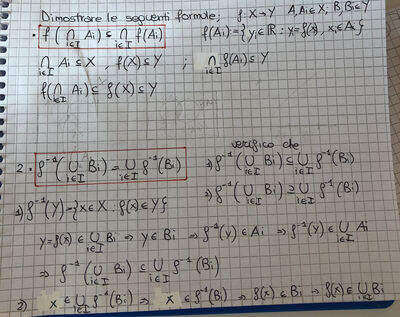 Dimostrare le seguenti formule; f: X→Y A, Ai ⊆ X; B, Bi ⊆ Y
• f(∩i∈I Ai) ⊆ ∩i∈I f(Ai) f(Ai) = {yi ∈ ℝ : y = f(x), xi ∈ Ai}
∩i∈I Ai ⊆ X, f(X) ⊆ Y ; ∩i∈I f(Ai) ⊆ Y
f(∩i∈I Ai) ⊆ f(X) ⊆ Y
verifico che
2. f⁻¹(∪i∈I Bi) = ∪i∈I f⁻¹(Bi) 1) f⁻¹(∪i∈I Bi) ⊆ ∪i∈I f⁻¹(Bi)
2) f⁻¹(∪i∈I Bi) ⊇ ∪i∈I f⁻¹(Bi)
1) f⁻¹(Y) = {x ∈ X : f(x) ∈ Y}
y = f(x) ∈ ∪i∈I Bi ⇒ y ∈ Bi ⇒ f⁻¹(y) ∈ Ai ⇒ f⁻¹(y) ∈ ∪i∈I Ai
⇒ f⁻¹(∪i∈I Bi) ⊆ ∪i∈I f⁻¹(Bi)
2) x ∈ ∪i∈I f⁻¹(Bi) ⇒ x ∈ f⁻¹(Bi) ⇒ f(x) ∈ Bi ⇒ f(x) ∈ ∪i∈I Bi